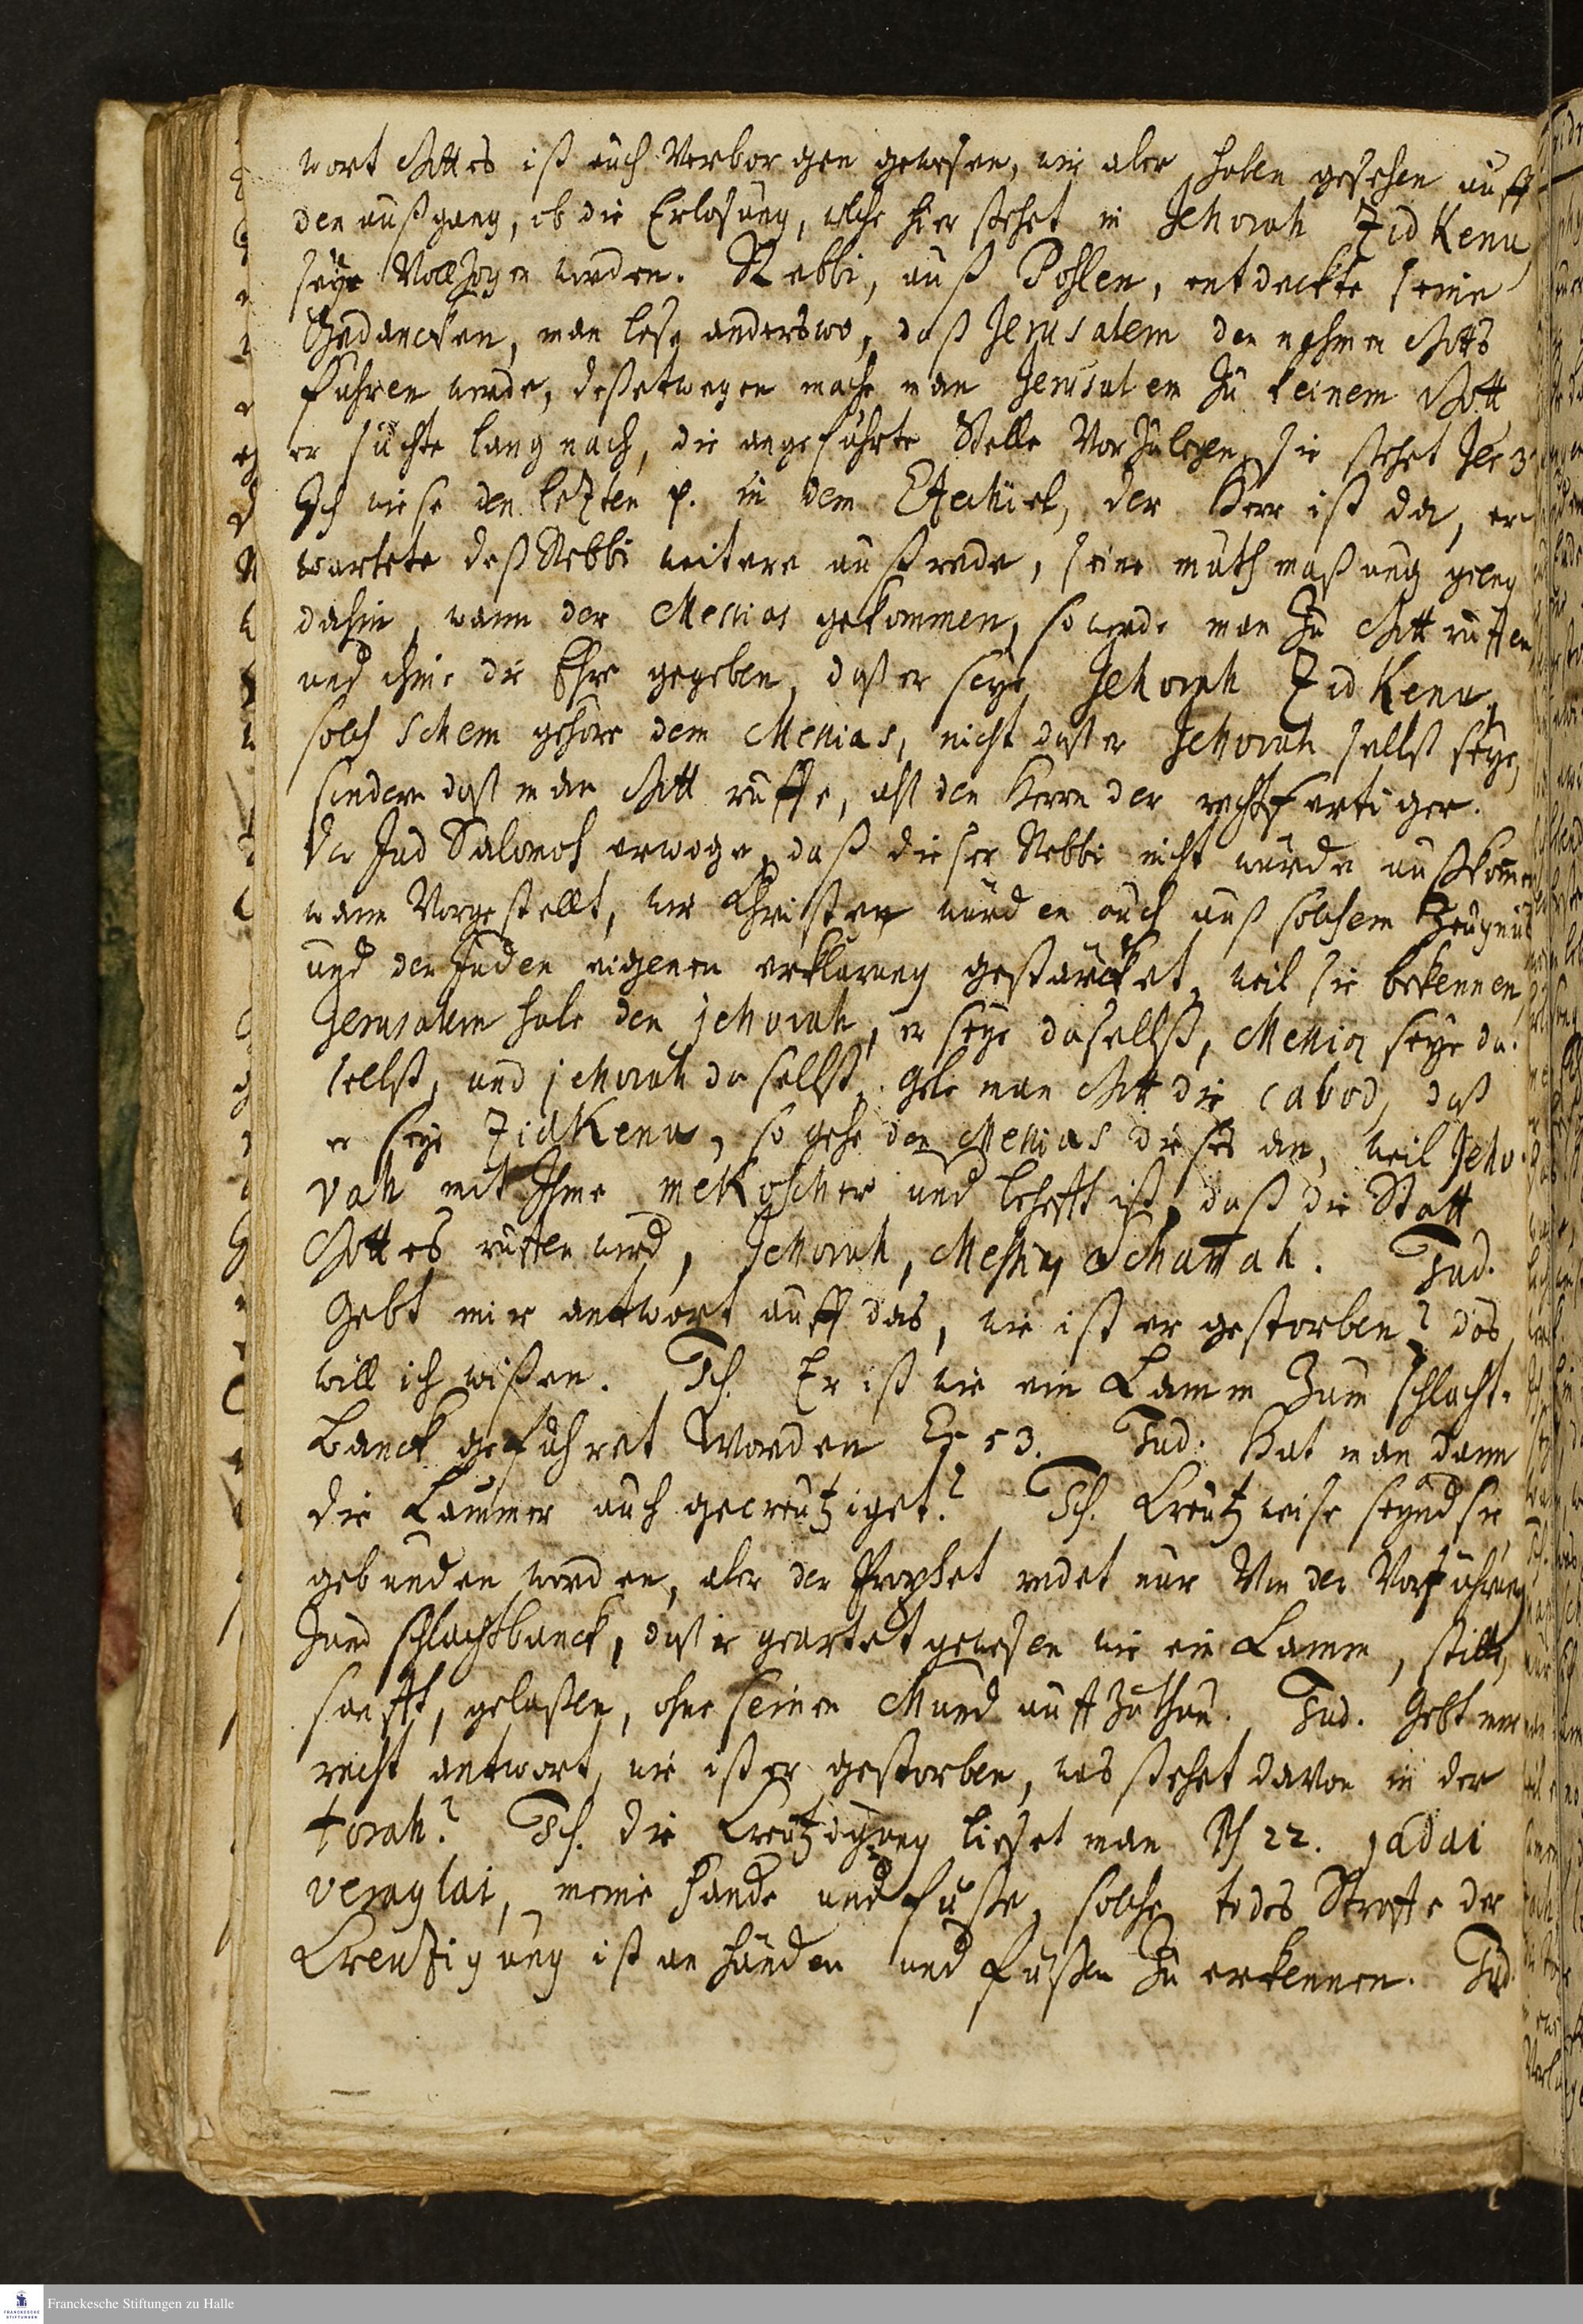 wort Gottes ist euch Verborgen gewesen, wir aber haben gesehen auff
den außgang, ob die Erlösung, welche hier stehet in Jehovah Zidkenu
seye Vollzogen worden. Rebbi, auß Pohlen, entdeckte seine
Gedancken, man lese anderswo, daß Jerusalem den nahmen Gotts
führen werde, deßetwegen mache man Jerusalem zu keinem Gott
er suchte lang nach, die angeführte Stelle Vorzulegen, sie stehet Jer 3
Ich wiese den lezten p. in dem Ezechiel, der Herr ist da, er-
wartete deß Rebbi weitere außrede, seine muthmaßung gieng
dahin, wann der Messias gekommen, so werde man zu Gott ruffen
und ihme die Ehre gegeben, daß er seye Jehovah Zidkenu,
solch schem gehöre dem Messias, nicht daß er Jehovah selbst seye,
sondern daß man Gott ruffe, alß den Herrn der rechtfertiger.
Der Jud Salomoh erwoge, daß dieser Rebbi nicht wurde außkommen
wann Vorgestellt, wir Christen wurden auch auß solchem Zeugnuß
und der Juden eigenen erklärung gestärcket, weil sie bekennen
Jerusalem habe den jehovah, er seye daselbst, Messias seye da-
selbst, und jehovah daselbst, gebe man Gott die cabod, daß
er seye Zidkenu, so gehe den Messias dieses an, weil Jeho-
vah mit Ihme mekoscher und behefft ist, daß die Statt
Gottes ruffen wird, Jehovah, Messias Schammah. Jud.
Gebt mir antwort auff das, wie ist er gestorben? das
will ich wißen. Ich. Er ist wie ein Lamm zum schlacht-
banck geführet Worden Es 53. Jud. Hat man dann
die Lämmer auch gecreutziget? Ich. Creutzweise seynd sie
gebunden worden, aber der Prophet redet nur Von der Vorführung
zur schlachtbanck, daß er geartet gewesen wie ein Lamm, still,
sanfft, gelaßen, ohne seinen Mund auffzuthun. Jud. Gebt mir
recht antwort, wie ist er gestorben, was stehet davon in der
torah? Ich. die Creutzigung lieset man Ps 22. jadai
veraglai, meine Hände und Füße, solche todes Straffe der
Creuzigung ist an händen und füßen zu erkennen. Jud.
Franckesche Stiftungen zu Halle